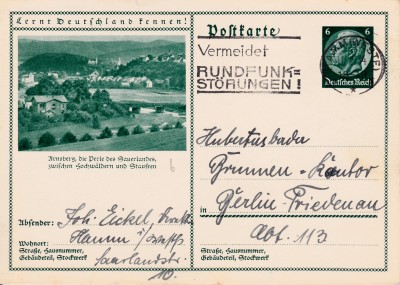 Lernt Deutschland kennen!
Postkarte
Vermeidet
RUNDFUNK=
STÖRUNGEN!
6 6
Deutsches Reich
Arnsberg, die Perle des Sauerlandes,
zwischen Hochwäldern und Stausee
6
Hubertusbader
Brunnen-Kontor
in Berlin-Friedenau
Abt. 113
Absender: Joh. Eickel,
Wohnort: Hamm i/Westf
Straße, Hausnummer,
Gebäudeteil, Stockwerk
Saarlandstr.
10.
Straße, Hausnummer,
Gebäudeteil, Stockwerk